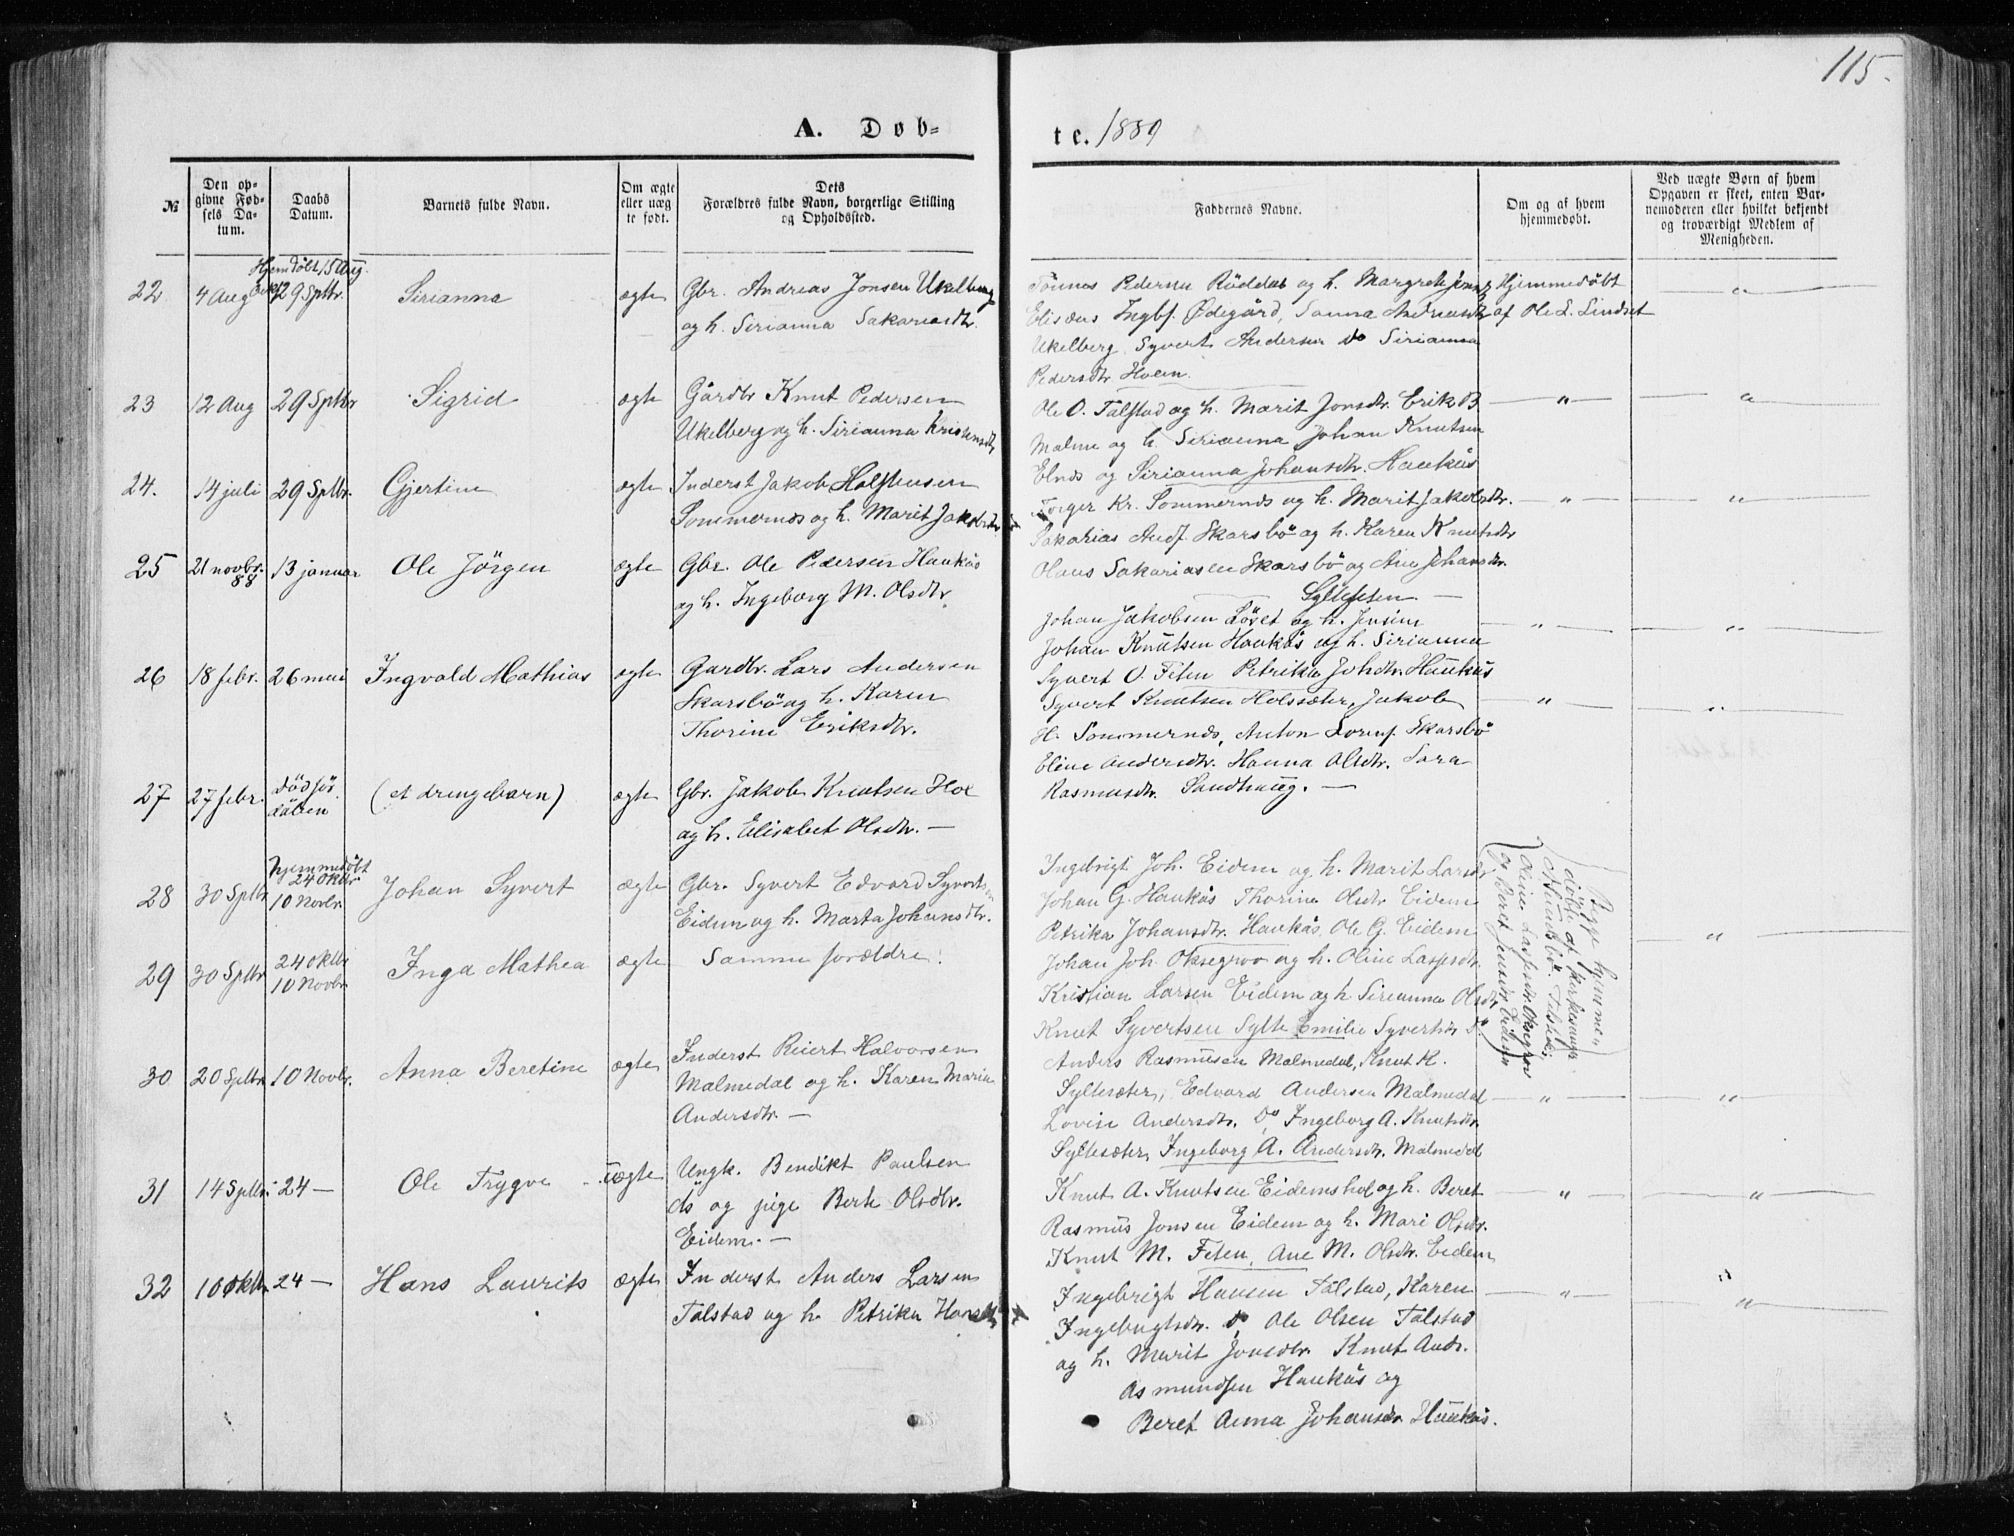 115.
A. Døb-
te. 1889
№
Den op-
givne Fød-
sels Da-
tum.
Daabs
Datum.
Barnets fulde Navn.
Om ægte
eller uæg
te født.
Dets
Forældres fulde Navn, borgerlige Stilling
og Opholdssted.
Faddernes Navne.
Om og af hvem
hjemmedøbt.
Ved uægte Børn af hvem
Opgaven er skeet, enten Bar-
nemoderen eller hvilket bekjendt
og troværdigt Medlem af
Menigheden.
Hjemdöbt 15 Aug.
22 4 Aug 29 Sptbr. Sirianna ægte Gbr. Andreas Jonsen Ukelberg
og h. Sirianna Sakariasdtr.
Tönnes Röddal og h. Margrete Hjemmedöbt
Ødegård, Sanna Andreasdtr af Ole L. Lindset
Ukelberg, Syvert Andersen Do Sirianna
Pedersdtr Hoem.
23 12 Aug 29 Sptbr Sigrid ægte Gårdbr Knut Pedersen
Ukelberg og h. Sirianna Kristensdtr
Ole O. Talstad og h. Marit Jonsdtr. Erik B
Malme og h. Sirianna Johan Knutsen
Elnds og Sirianna Johansdtr. Haukås
24. 14 juli 29 Sptbr. Gjertine ægte Inderst Jakob Halfhusen
Sommernds og h. Marit Jakobsdtr
Torger Kr. Sommernds og h. Marit Jakobsdtr.
Sakarias Andf. Skarsbö og h. Karen Knutsdtr
Olaus Sakariasen Skarsbö og Ane Johansdtr.
Syltesæten —
25 21 novbr. 88 13 januar Ole Jörgen ægte Gbr. Ole Pedersen Haukås
og h. Ingeborg M. Olsdtr.
Johan Jakobsen Lövet og h. Jensine
Johan Knutsen Haukås og h. Sirianna
Syvert O. Feten Petrika Johdtr. Haukås
26 18 febr. 26 mai Ingvald Mathias ægte Gardbr. Lars Andersen
Skarsbö og h. Karen
Thorine Eriksdtr.
Syvert Knutsen Holssæter, Jakob
H. Sommernds, Anton Lorensf. Skarsbö
Eline Andersdtr. Hanna Olsdtr. Sara
Rasmusdtr. Sandhaug. —
27 27 febr. dödfö
dåben (et drengebarn) ægte Gbr. Jakob Knutsen Hoe
og h. Elisabet Olsdtr. —
28 30 Sptbr hjemmedöbt
24 oktbr.
10 Novbr. Johan Syvert ægte Gbr. Syvert Edvard Syvertsen
Eidem og h. Marta Johansdtr.
Ingebrigt Joh. Eidem og h. Marit Larsdtr
Johan G. Haukås Thorine Olsdtr Eidem
Petrika Johansdtr. Haukås. Ole G. Eidem
Begge hjemme
döbte af kirkesanger
Aasmundsbö
Oline Oksegrov
og Beret Jensdtr. Eidem
29 30 Sptbr 24 oktbr
10 Novbr Inga Mathea ægte Samme forældre.
Johan Joh. Oksegrov og h. Oline
Kristian Larsen Eidem og h Sirianna Olsdtr
Knut Syvertsen Sylte Emilie Syvertsdr Do.
30 20 Sptbr 10 Novbr. Anna Beretine ægte Inderst Reiert Halvorsen
Malmedal og h. Karen Maria
Andersdtr. —
Anders Rasmusen Malmedal, Knut K.
Syltesæter, Edvard Andersen Malmedal
Lovise Andersdtr. Do, Ingeborg A. Knutsdtr.
Syltesæter, Ingeborg A. Andersdtr. Malmedal
31 14 Sptbr. 24 — Ole Trygve uægte Ungk. Bendikt Paulsen
ds og pige Berte Olsdtr.
Eidem. —
Knut A. Knutsen Eidemshol og h. Beret
Rasmus Jonsen Eidem og h. Mari Olsdtr.
Knut M. Feten, Ane M. Olsdtr. Eidem
32 10 Oktbr. 24 — Hans Laurits ægte Inderst Anders Larsen
Talstad og h. Petrika Hansdtr
Ingebrigt Hansen Talstad, Karen
Ingebrigtsdtr. Do, Ole Olsen Talstad
og h. Marit Jonsdtr. Knut Andr.
Asmundsen Haukås og
Beret Anna Johansdr. Haukås.